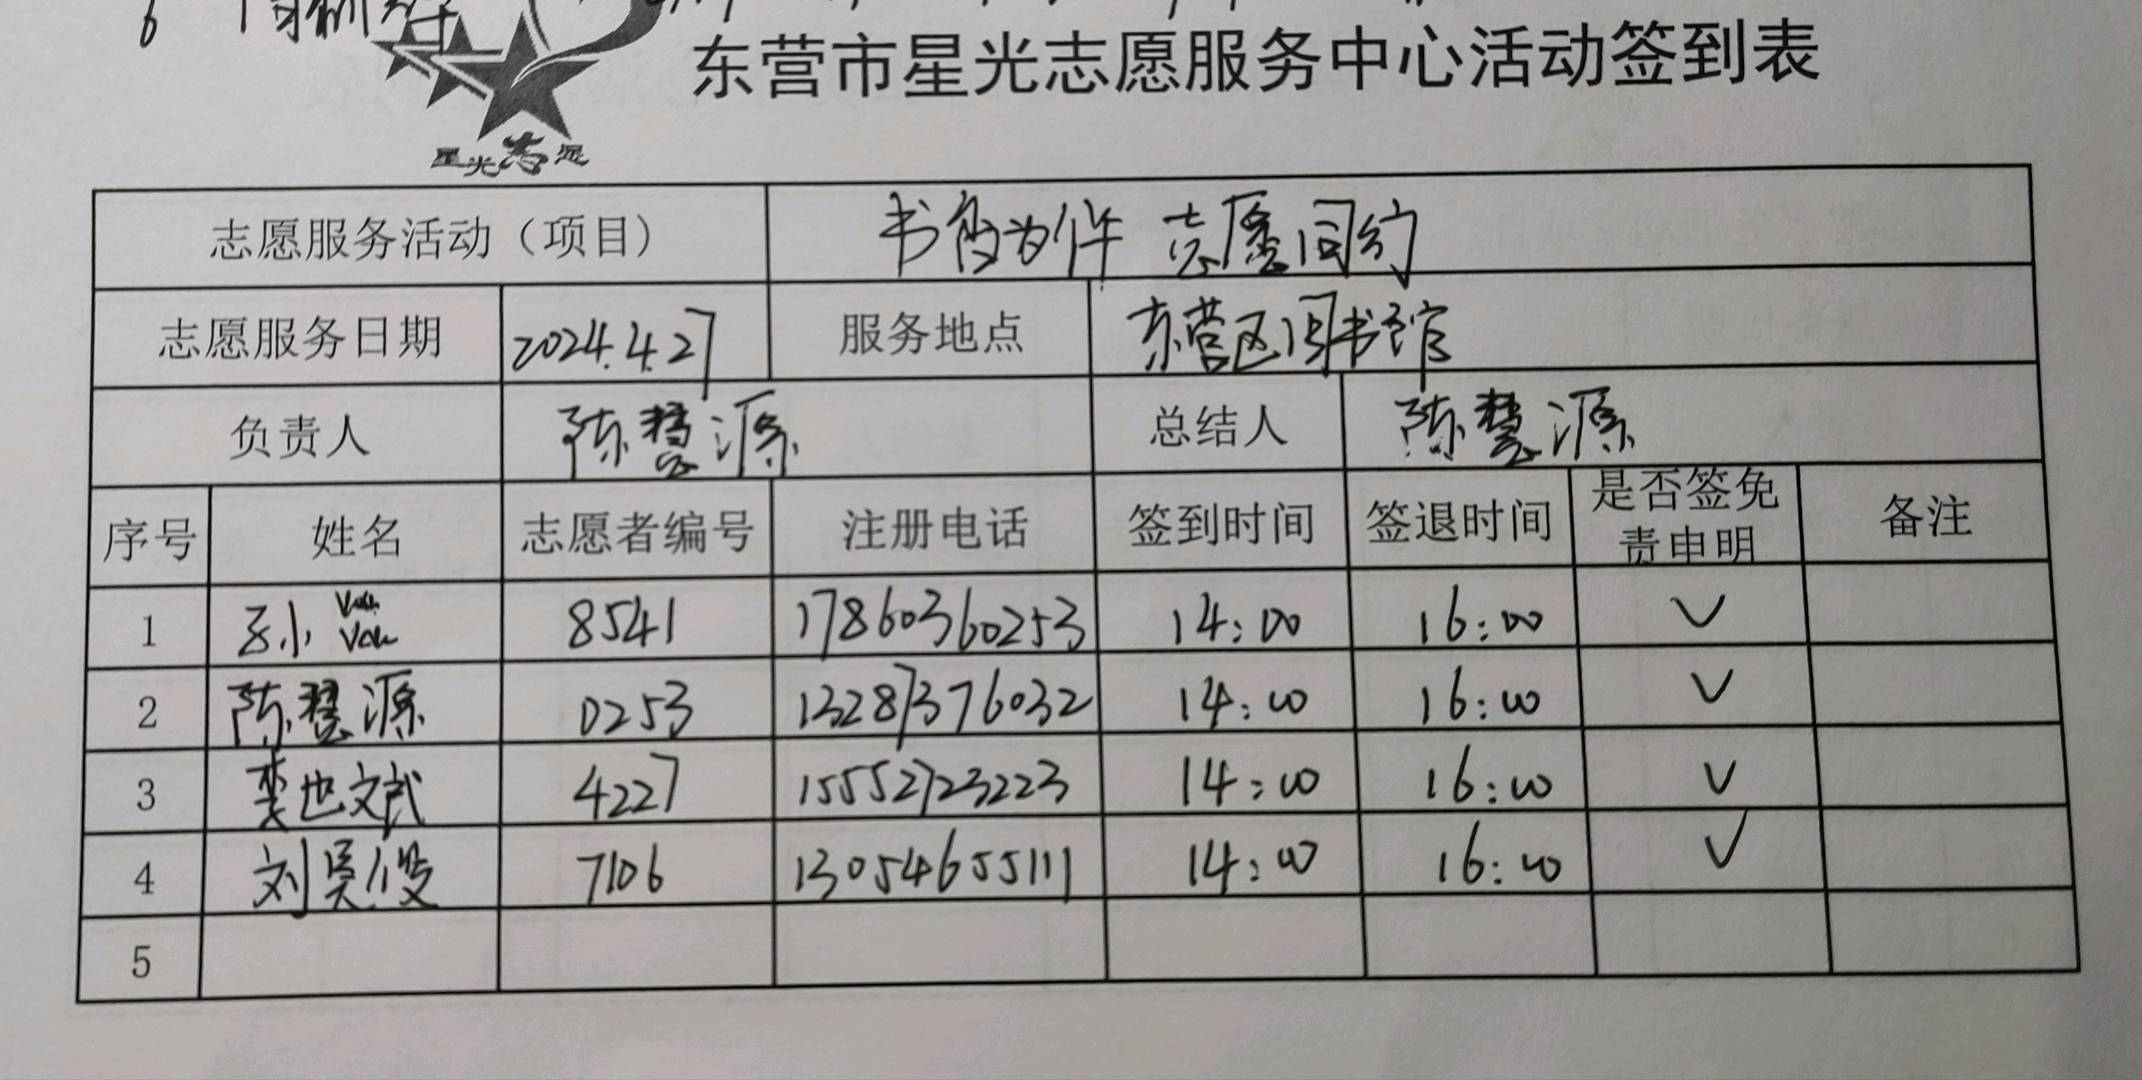 6
东营市星光志愿服务中心活动签到表
星光志愿
志愿服务活动（项目） 书香为伴 志愿同行
志愿服务日期 2024.4.27 服务地点 东营区图书馆
负责人 陈慧源 总结人 陈慧源
序号 姓名 志愿者编号 注册电话 签到时间 签退时间 是否签免责申明 备注
1 8541 17860360253 14:00 16:00 ✓
2 陈慧源 0253 13287376032 14:00 16:00 ✓
3 4227 15552723223 14:00 16:00 ✓
4 刘昊俊 7106 13054655111 14:00 16:00 ✓
5